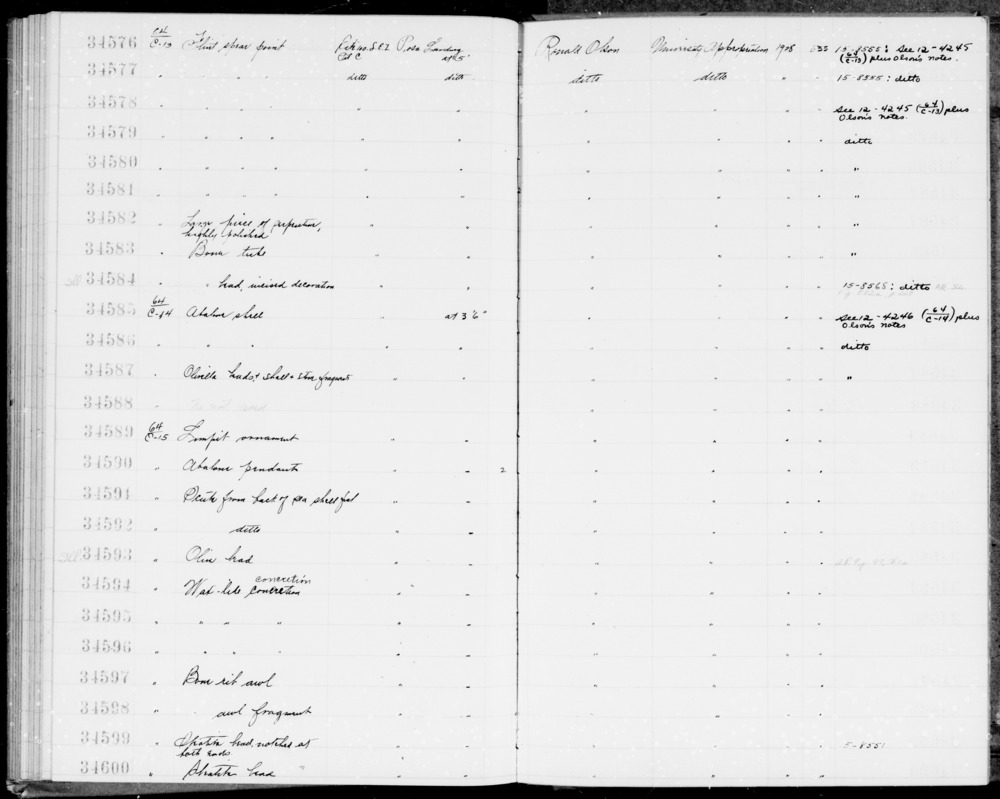 34576 64/C-13 Flint, spear point Ronald Olson University Appropriation 1928 15-8555: See 12-4245
(64/C-13) plus Olson's notes.
34577 " " " ditto ditto ditto ditto " 15-8555: ditto
34578 " " " " " " " " See 12-4245 (64/C-13) plus
Olson's notes.
34579 " " " " " " " " ditto
34580 " " " " " " " " "
34581 " " " " " " " " "
34582 " piece of
highly polished " " " " "
34583 " Bone tube " " " " "
34584 " " bead, incised decoration " " " " 15-8565: ditto
34585 64/C-14 Abalone shell " at 3'6" " " See 12-4246 (64/C-14) plus
Olson's notes
34586 " " " " " " " ditto
34587 Olivella beads + shell + stone fragments " " " " "
34588 "
34589 64/C-15 Limpit ornament " " " "
34590 " Abalone pendants " " 2 " "
34591 " from back of sea " " " "
34592 " ditto " " " "
34593 " bead " " " "
34594 " Wax-like concretion concretion " " " "
34595 " " " " " " " "
34596 " " " " " " " "
34597 " Bone rib awl " " " "
34598 " awl fragment " " " "
34599 " Steatite bead, notched at
both ends " " " " 5-8551
34600 " Steatite bead " " " "